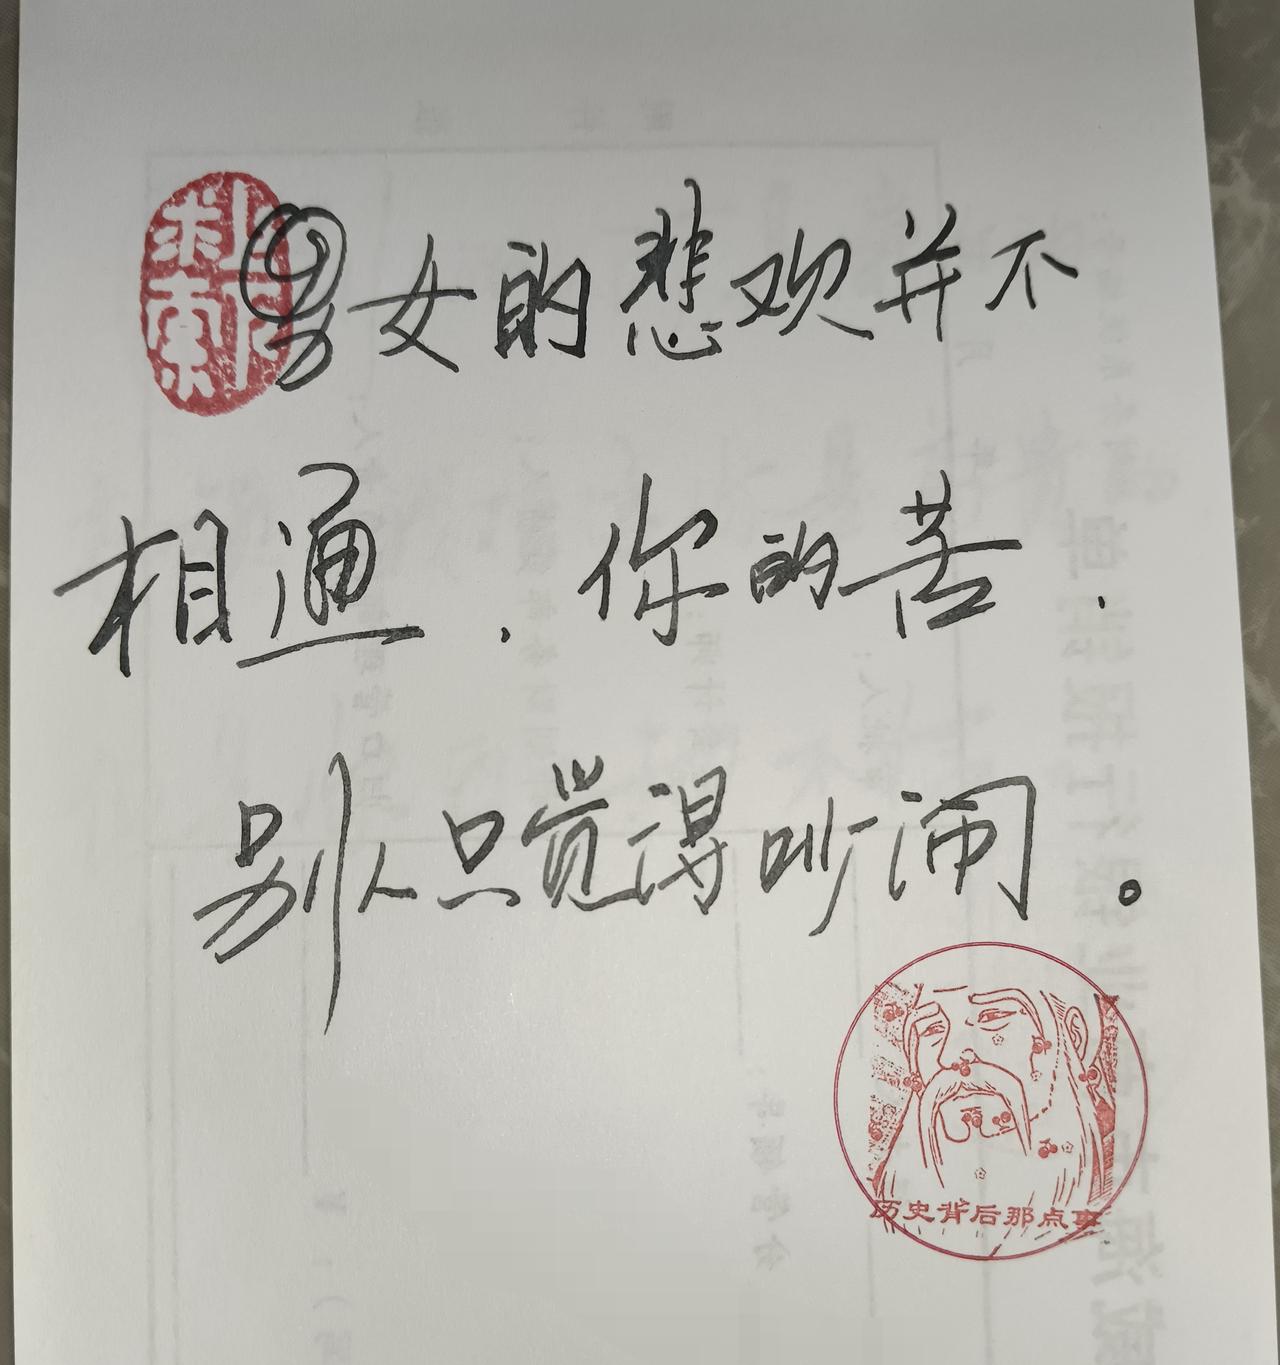 男女的悲欢并不
相通.你的苦.
别人只觉得吵闹。
历史背后那点事